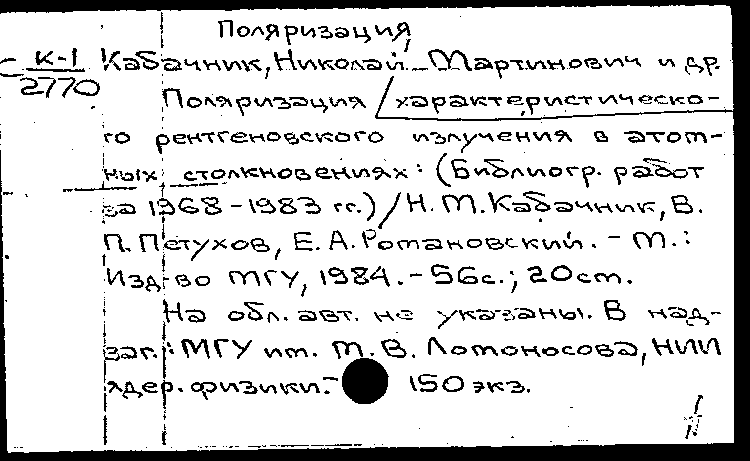 Поляризация
К-1 Кабачник, Николай Мартинович и др.
2770
Поляризация характеристическо-
го рентгеновского излучения в атом-
ных столкновениях: (Библиогр. работ
за 1968-1983 гг.) / Н.М. Кабачник, В.
П. Петухов, Е.А. Романовский. - М.:
Изд-во МГУ, 1984. - 56с.; 20см.
На обл. авт. не указаны. В над-
заг.: МГУ им. М.В. Ломоносова, НИИ
ядер. физики. - 150 экз.